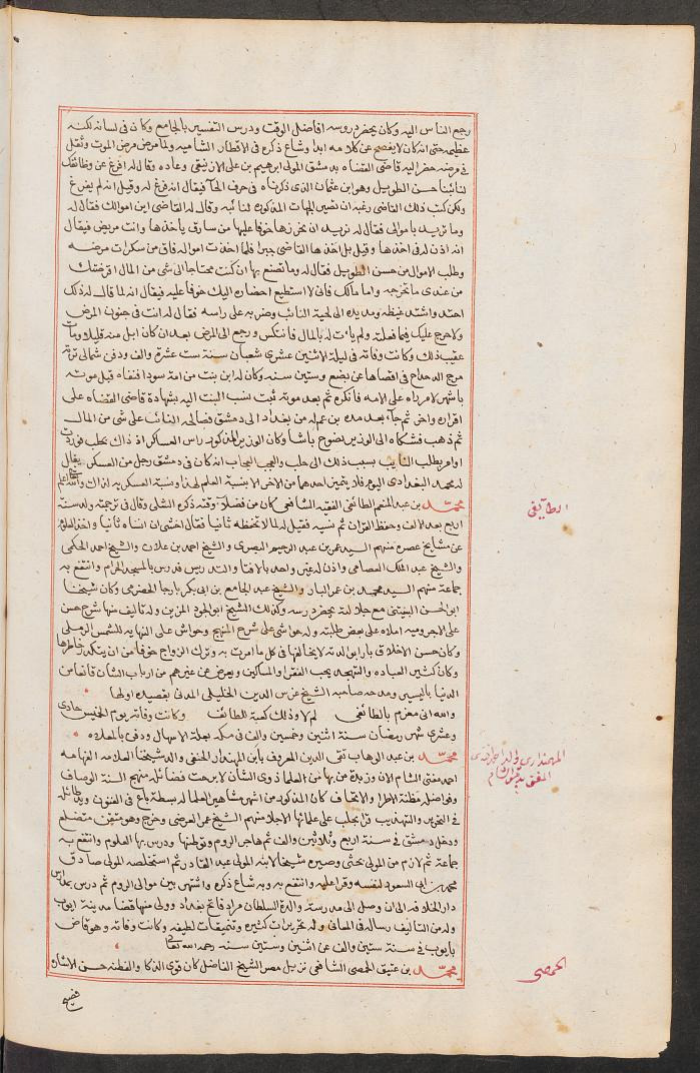 رجع الناس اليه وكان يحضر دروسه افاضل الوقت ودرس التفسير بالجامع وكان فى لسانه لكنه
عظيمه حتى انه كان لا يفصح عن كلامه ابدا وشاع ذكره فى الاقطار الشاميه ولما مرض مرض الموت وثقل
فى مرضه حضر اليه قاضى القضاه بدمشق المولى ابرهيم بن على الازنيقى وعاده وقال له افرغ عن وظائفك
لنائبنا حسن الطويل وهو ابن عثمان الذى ذكرناه فى حرف الحآ فيقال انه فرغ له وقيل انه لم يفرغ
ولكن كتب ذلك القاضى رغبه ان تصير الجهات المذكوره لنائبه وقال له القاضى اين اموالك فقال له
وما تريد باموالى فقال له نريد ان نحرزها خوفا عليها من سارق ياخذها وانت مريض فيقال
انه اذن له فى اخذها وقيل بل اخذها القاضى جبرا فلما اخذت امواله فاق من سكرات مرضه
وطلب الاموال من حسن الطويل فقال له وما تصنع بها ان كنت محتاجا الى شى من المال اقرضتك
من عندى ما تخرجه واما مالك فانى لا استطيع احضاره اليك خوفا عليه فيقال انه لما قال له ذلك
احتد واشتد غيظه ومد يده الى لحية النائب وضربه على راسه فقال له انت فى جنون المرض
ولا حرج عليك فيما فعلته ولم يات له بالمال فانتكس ورجع الى المرض بعد ان كان ابل منه قليلا ومات
عقيب ذلك وكانت وفاته فى ليلة الاثنين عشرى شعبان سنة ست عشرة والف ودفن شمالى تربة
مرج الدحداح فى اقصاها عن بضع وستين سنه وكان له ابن بنت من امة سودا انفاه قبل موته
باشهر لامر راه على الامه فانكره ثم بعد موته ثبت نسب البنت اليه بشهادة قاضى القضاه على
اقراره واخر ثم جآء بعد مده بن عم له من بغداد الى دمشق فصالحه النائب على شى من المال
ثم ذهب فشكاه الى الوزير نصوح باشا وكان الوزير المذكور راس العساكر اذ ذاك بحلب فوردت
اوامر بطلب النايب بسبب ذلك الى حلب والعجب العجاب انه كان فى دمشق رجل من العسكر يقال
له محمد البغدادى اليوم فلا يتميز احدهما عن الاخر الا بنسبة العلم لهذا ونسبة العسكر به لذاك والله اعلم
محمد بن عبد المنعم الطائفى الفقيه الشافعى كان من فضلآء وقته ذكره الشلى وقال فى ترجمته ولد سنة
اربع بعد الالف وحفظ القران ثم نسيه فقيل له لما لا تحفظه ثانيا فقال اخشى ان انساه ثانيا واخذ العلوم
عن مشايخ عصره منهم السيد عمر بن عبد الرحيم البصرى والشيخ احمد بن علان والشيخ احمد الحكمى
والشيخ عبد الملك العصامى واذن له غير واحد بالافتا والتدريس فدرس بالمسجد الحرام وانتفع به
جماعة منهم السيد محمد بن عمر البار والشيخ عبد الجامع بن ابى بكر بارجا الحضرمى وكان شيخنا
ابو الحسن النبتيتى مع جلالته يحضر درسه وكذلك الشيخ ابو الجود المزين وله تآليف منها شرح حسن
على الاجروميه املاه على بعض طلبته وله حواشى على شرح المنهج وحواش على النهايه للشمس الرملى
وكان حسن الاخلاق بارا بوالدته لا يخالفها فى كل ما امرت به وترك الزواج خوفا من ان يتكدر خاطرها
وكان كثير العباده والتهجد يحب الفقرا والمساكين ويعرض عن غيرهم من ارباب الشان قانعا من
الدنيا باليسير ومدحه صاحبه الشيخ غرس الدين الخليلى المدنى بقصيده اولها
والله انى مغرم بالطائفى لم لا وذلك كعبة للطائف وكانت وفاته يوم الخميس حادى
وعشرى شهر رمضان سنة اثنين وخمسين والف فى مكه بعلة الاسهال ودفن بالمعلاه
محمد بن عبد الوهاب تقى الدين المعروف بابن المهمندار الحنفى والد شيخنا العلامه الفهامه
احمد مفتى الشام الان وزبدة من بها من العلما ذوى الشان لا برحت فضائله منهج السنة الوصاف
وفواضله مظنة الاطرا والاتحاف كان المذكور من اشهر مشاهير العلما له بسطة باع فى الفنون ويد طائله
فى التحرير والتهذيب قرا بحلب على علمائها الاجلا منهم الشيخ عمر العرضى وخرج وهو متفنن متضلع
ودخل دمشق فى سنة اربع وثلاثين والف ثم هاجر الروم وتوطنها ودرس بها العلوم وانتفع به
جماعة ثم لازم من المولى بحثى وصيره شيخا لابنه المولى عبد القادر ثم استخلصه المولى صادق
محمد بن ابى السعود لنفسه وقرا عليه وانتفع به وبه شاع ذكره واشتهر بين موالى الروم ثم درس بمدارس
دار الخلافه الى ان وصل الى مدرسة والدة السلطان مراد فاتح بغداد وولى منها قضا مدينة ايوب
وله من التآليف رساله فى المعانى وله تحريرات كثيره وتنميقات لطيفه وكانت وفاته وهو قاض
بايوب فى سنة ستين والف عن اثنين وستين سنه رحمه الله تعالى
محمد بن عتيق الحمصى الشافعى نزيل مصر الشيخ الفاضل كان قوى الذكا والفطنه حسن الانشاد
الطآئفى
الحمصى